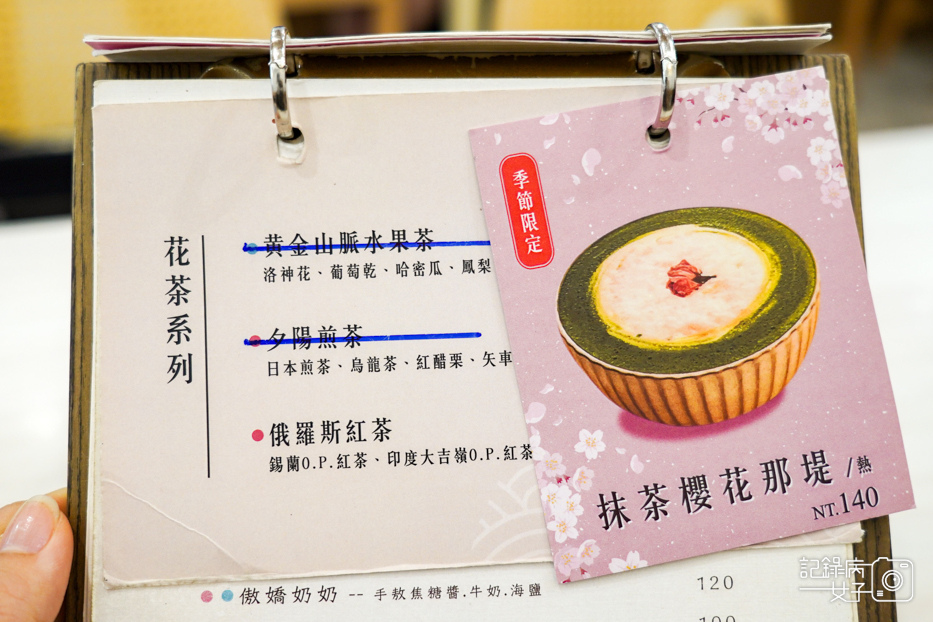 花茶系列
黄金山脈水果茶
洛神花、葡萄乾、哈密瓜、鳳梨
夕陽煎茶
日本煎茶、烏龍茶、紅醋栗、矢車
俄羅斯紅茶
錫蘭O.P.紅茶、印度大吉嶺O.P.紅茶
季節限定
抹茶櫻花那堤/熱
NT.140
傲嬌奶奶 -- 手熬焦糖醬.牛奶.海鹽 120
記錄病
女子